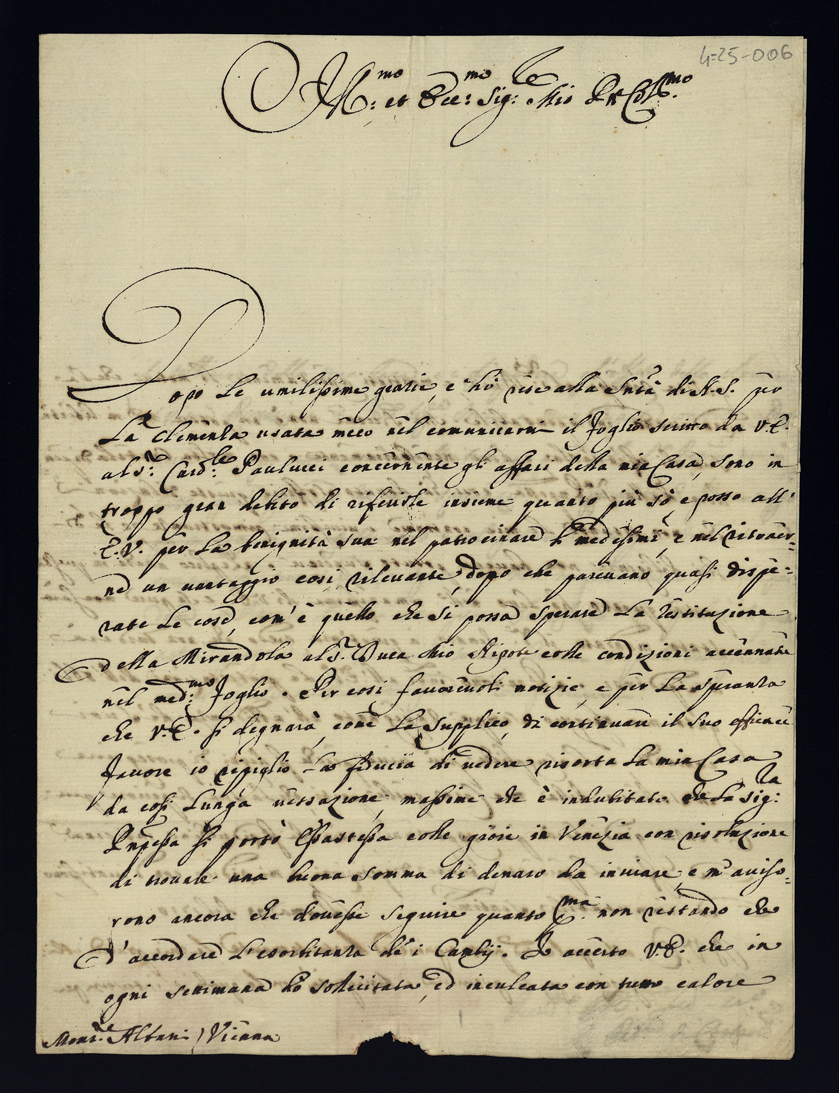 4-25-006
Ill.mo et Ecc.mo Sig.re Mio P.ne Col.mo
Dopo le umilissime grazie, c'hò rese alla Sntà di N.S. per
La Clemenza usata meco nel comunicarmi il foglio scritto da V.E.
al S.r Card.le Paulucci concernente gli affari della mia Casa, sono in
troppo gran debito di riferirle insieme quanto più sò, e posso all'
E.V. per La benignità sua nel patrocinare li medesimi, e nel ritraer-
ne un vantaggio così rilevante, dopo che parevano quasi dispe-
rate Le cose, com'è quello che si possa sperare La restituzione
della Mirandola al S.r Duca Mio Nipote colle condizioni accennate
nel med.mo foglio. Per così favorevoli notizie, e per La speranza
che V.E. si degnarà, come La supplico, di continuare il suo efficace
favore io ripiglio La fiducia di vedere risorta La mia Casa
da così Lunga vessazione, massime che è indubitato che La Sig.ra
Pnpessa si portò Essa stessa colle gioie in Venezia con risoluzione
di trovare una buona somma di denaro da inviare, e m'aviso-
rono ancora che dovesse seguire quanto p.ma non restando che
d'accordare L'esorbitanza de i Cambij. Io accerto V.E. che in
ogni settimana hò sollecitata, ed inculcata con tutto calore
Mons.re Albani / Vienna